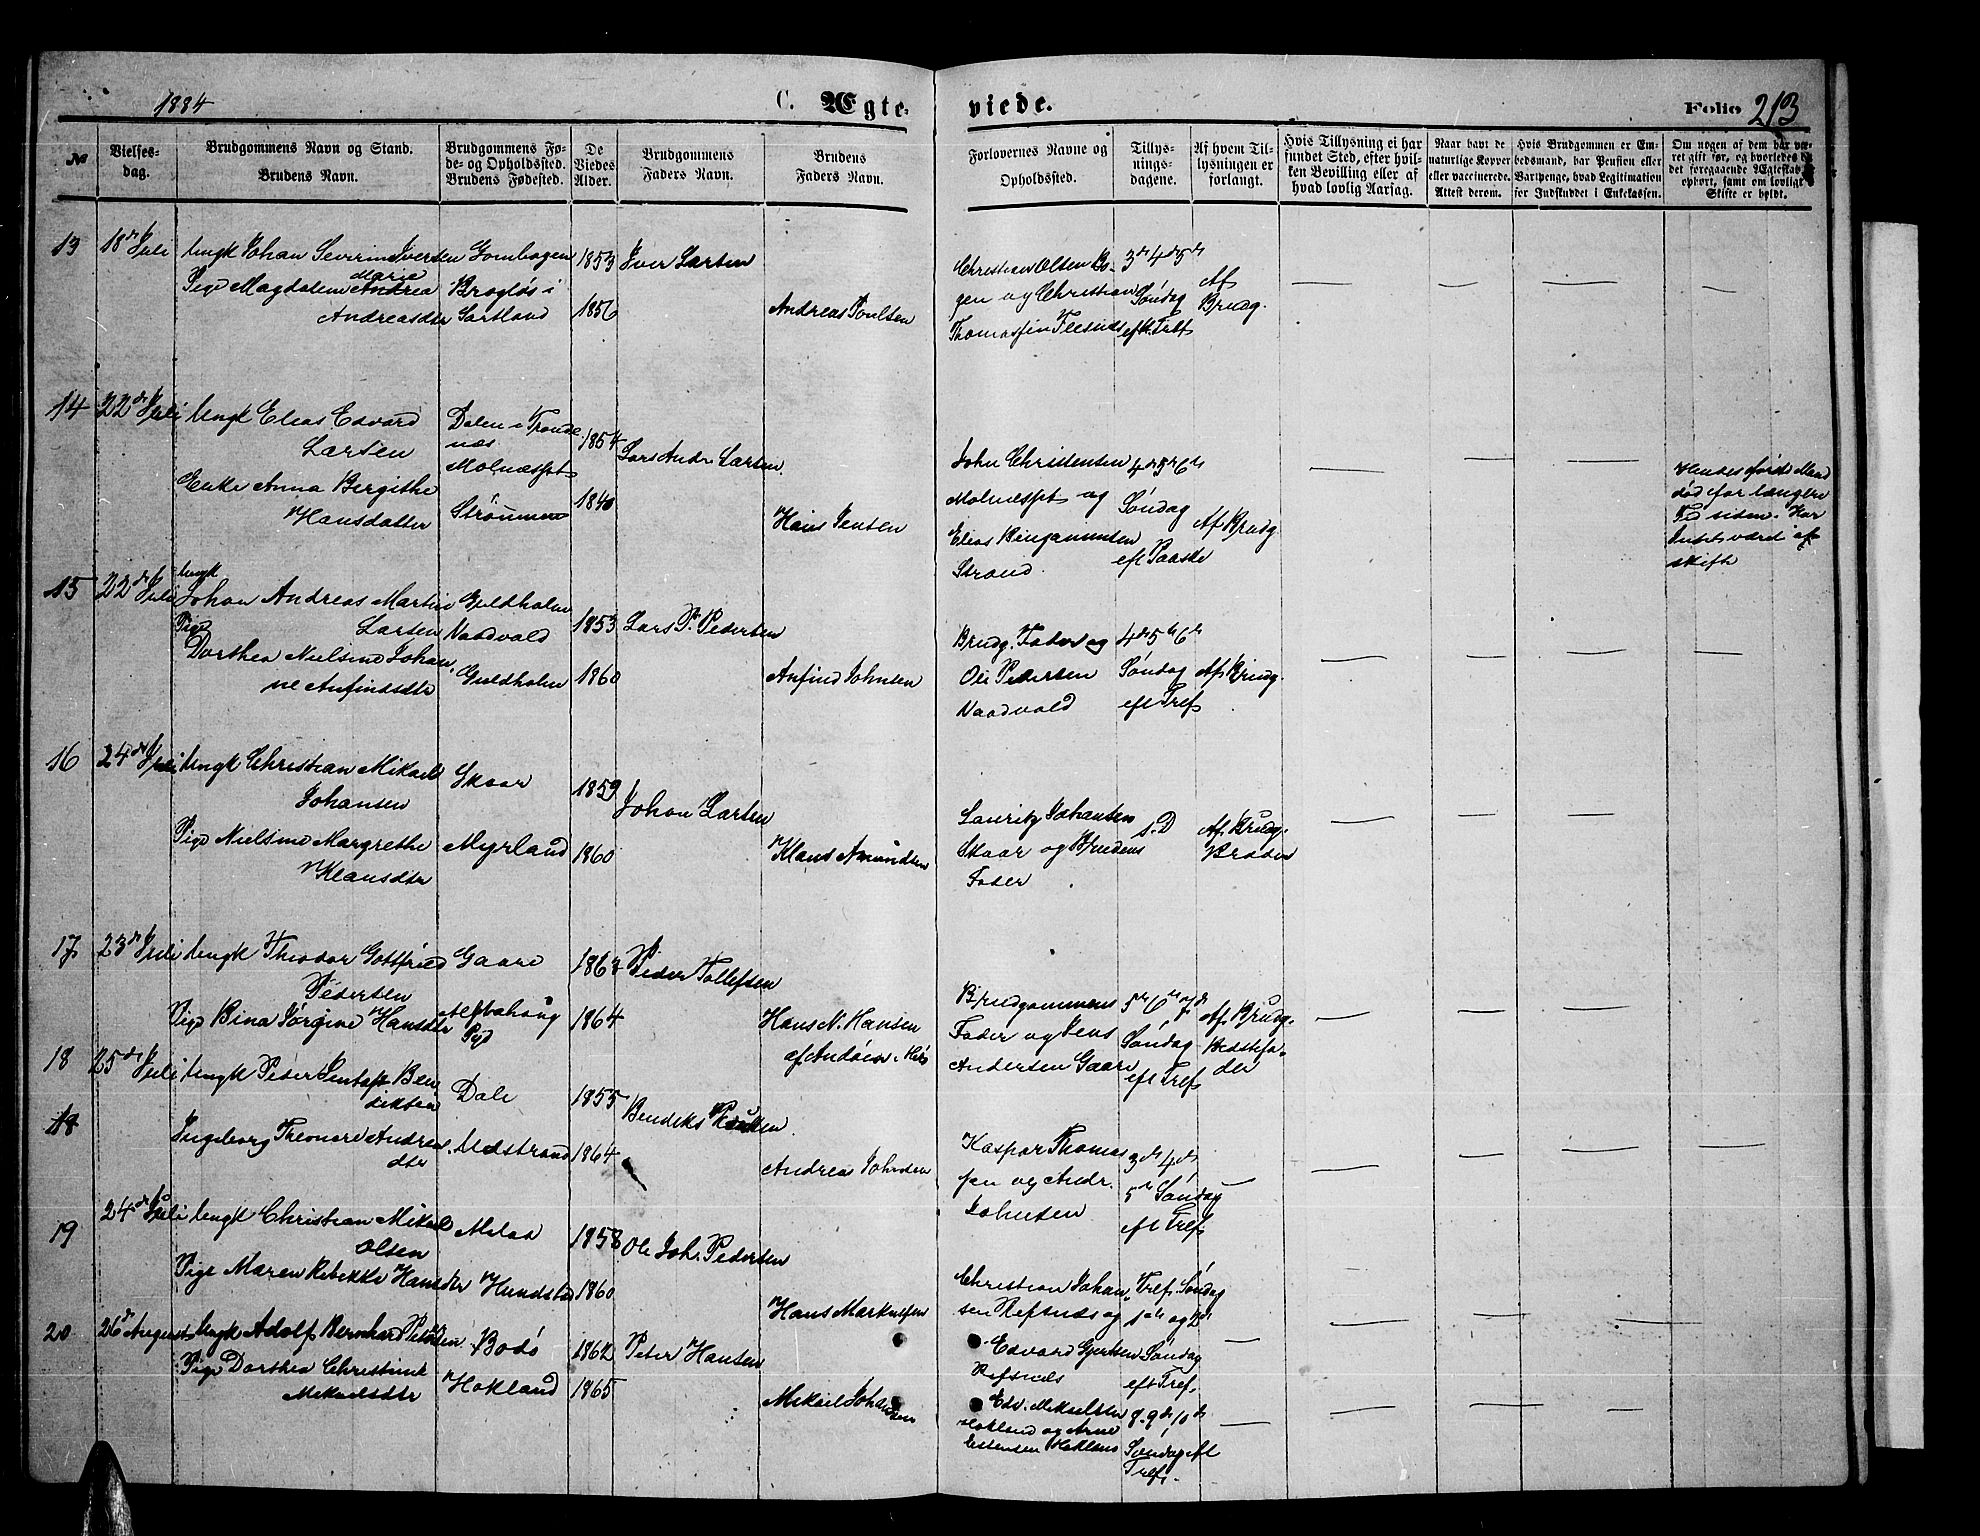 1884
C. Ægte-
viede.
Folio 213
№
Vielses-
dag.
Brudgommens Navn og Stand.
Brudens Navn.
Brudgommens Fø-
de- og Opholdssted.
Brudens Fødested.
De
Viedes
Alder.
Brudgommens
Faders Navn.
Brudens
Faders Navn.
Forlovernes Navne og
Opholdssted.
Tillys-
nings-
dagene.
Af hvem Til-
lysningen er
forlangt.
Hvis Tillysning ei har
fundet Sted, efter hvil-
ken Bevilling eller af
hvad lovlig Aarsag.
Naar havt de
naturlige Kopper
eller vaccinerede.
Attest derom.
Hvis Brudgommen er Em-
bedsmand, har Pension eller
Vartpenge, hvad Legitimation
for Indskuddet i Enkekassen.
Om nogen af dem har væ-
ret gift før, og hvorledes
det foregaaende Ægteskab
ophørt, samt om lovligt
Skifte er holdt.
13
18de Juli
Ungk Johan Severin Iversen
Pige Magdalena Andrea
Marie
Andreasdtr
Brogløs i
Sortland
1853
1856
Iver Larsen
Andreas Poulsen
Christian Olsen Bo-
gen og Christian
3de 4de 5te
Søndag
eft. Tref
Af
Brudg.
14
22de Juli
Ungk Elias Edvard
Larsen
Enke Anna Bergithe
Hansdatter
Dalen i Tronde
næs
Molnæsset
Strømmen
1854
1840
Lars Andr. Larsen
Hans Jensen
John Christensen
Molnæsset og
Elias Benjaminsen
Strand.
4de 5te 6te
Søndag
eft Paaske
Af Brudg
Hendes første Mand
død for længere
Tid siden. Har
intet været at
skifte
15
22de Juli
Ungk
Johan Andreas Martin
Larsen
Pige
Dorthea Nielsine Johan
ne Anfindsdtr
Guldholm
Vaadvold
Guldholm
1853
1860
Lars P. Pedersen
Anfind Johnsen
Brudg. Fader og
Ole Pedersen
Vaadvold
4de 5te 6te
Søndag
eft Tref
Af Brudg.
16
24de Juli
Ungk Christian Mikael
Johansen
Pige Nielsine Margrethe
Klausdtr
Skaar
Myrland
1859
1860
Johan Larsen
Klaus Amundsen
Lauritz Johansen
Skaar og Brudens
Fader
s. D
Af Brudg.
Broder
17
23de Juli
Ungk Theodor Gottfried
Pedersen
Pige Bina Jørgine Hansdtr
Gaare
1863
1864
Peder Tollefsen
Hans N. Hansen
Brudgommens
Fader og Jens
Andersen Gaare
5te 6te 7de
Søndag
eft Tref
Af Brudg.
Bedstefa-
der
18
25de Juli
Ungk Peder Bene
diktsen
Dale
18
Ingeborg Theonore Andrea
dtr
Medstrand
1855
1864
Andreas Johnsen
Kaspar Thomas
sen og Andr.
Johnsen
3de 4de
5te Søndag
eft Tref
19
24de Juli
Ungk Christian Mikael
Olsen
Pige Maren Rebekka Hansdtr
Melaa
Hundstad
1858
1860
Ole Joh. Pedersen
Hans Markussen
Christian Johan
sen Refsnæs og
Edvard Gjertsen
Refsnæs
Tref. Søndag
1ste og 2den
Søndag
eft Tref.
20
26de August
Ungk Adolf Bernhard Petersen
Pige Dorthea Christine
Mikaelsdtr
Bodø
Hokland
1862
1865
Peter Hansen
Mikael Johansen
Edv. Mikaelsen
Hokland og Arne
Estensen Hokland
8. 9de 10de
Søndag eft
Tref.